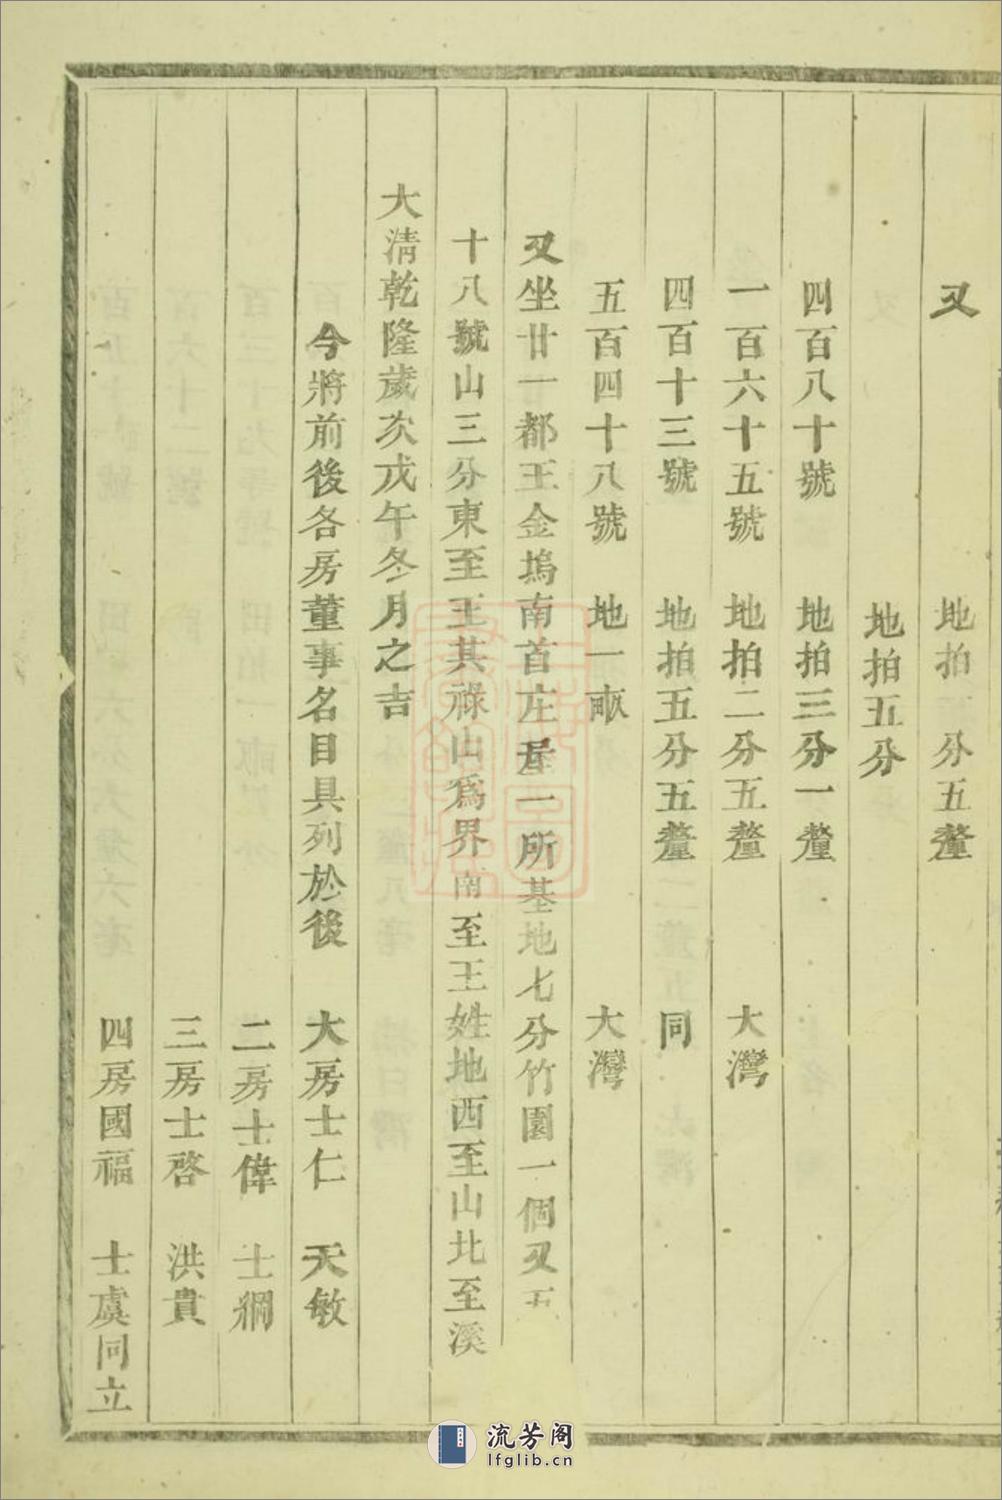 又 地拍一分五釐
地拍五分
四百八十號 地拍三分一釐
一百六十五號 地拍二分五釐 大灣
四百十三號 地拍五分五釐 同
五百四十八號 地一畝 大灣
又坐廿一都王金塢南首庄屋一所基地七分竹園一個又五
十八號山三分東至王其祿山爲界南至王姓地西至山北至溪
大清乾隆歲次戊午冬月之吉
今將前後各房董事名目具列於後 大房士仁 天敏
二房士偉 士綱
三房士啓 洪貴
四房國福 士虞同立
流芳阁
lfglib.cn